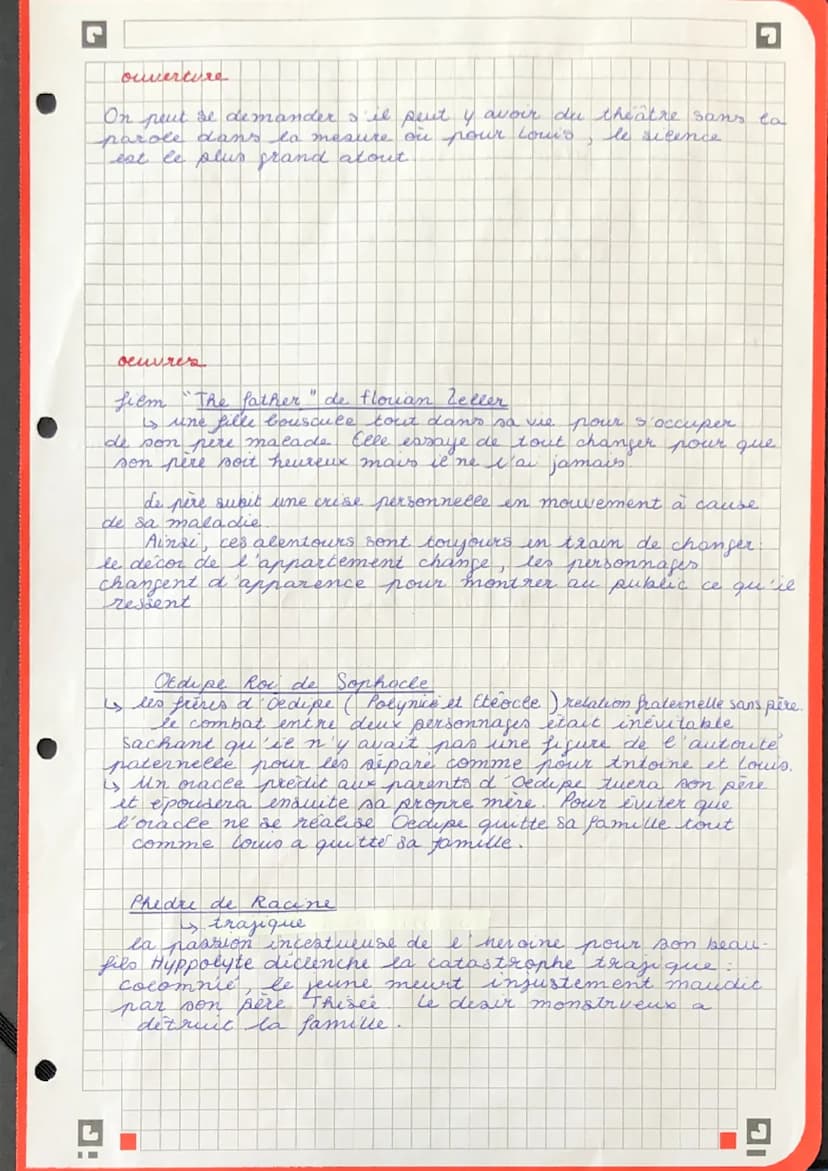 ouverture
On peut se demander s'il peut y avoir du théâtre sans la
parole dans la mesure où pour Louis, le silence
est le plus grand atout
oeuvres
film "The father" de florian Zeller
↳ une fille bouscule tout dans sa vie pour s'occuper
de son père malade. Elle essaye de tout changer pour que
son père soit heureux mais il ne l'ai jamais.
Le père subit une crise personnelle en mouvement à cause
de sa maladie.
Ainsi, ces alentours sont toujours en train de changer:
le décor de l'appartement change, les personnages
changent d'apparence pour montrer au public ce qu'il
ressent
Œdipe Roi de Sophocle
↳ les frères d'Oedipe (Polynice et Etéocle) relation fraternelle sans père.
le combat entre deux personnages était inévitable
sachant qu'il n'y avait pas une figure de l'autorité
paternelle pour les séparé comme pour Antoine et Louis.
↳ Un oracle prédit aux parents d'Oedipe tuera son père
et épousera ensuite sa propre mère. Pour éviter que
l'oracle ne se réalise Oedipe quitte sa famille tout
comme Louis a quitté sa famille.
Phèdre de Racine
↳ tragique
la passion incestueuse de l'heroïne pour son beau-
fils Hyppolyte déclenche la catastrophe tragique:
calomnié, le jeune meurt injustement maudit
par son père Thésée Le désir monstrueux a
détruit la famille.